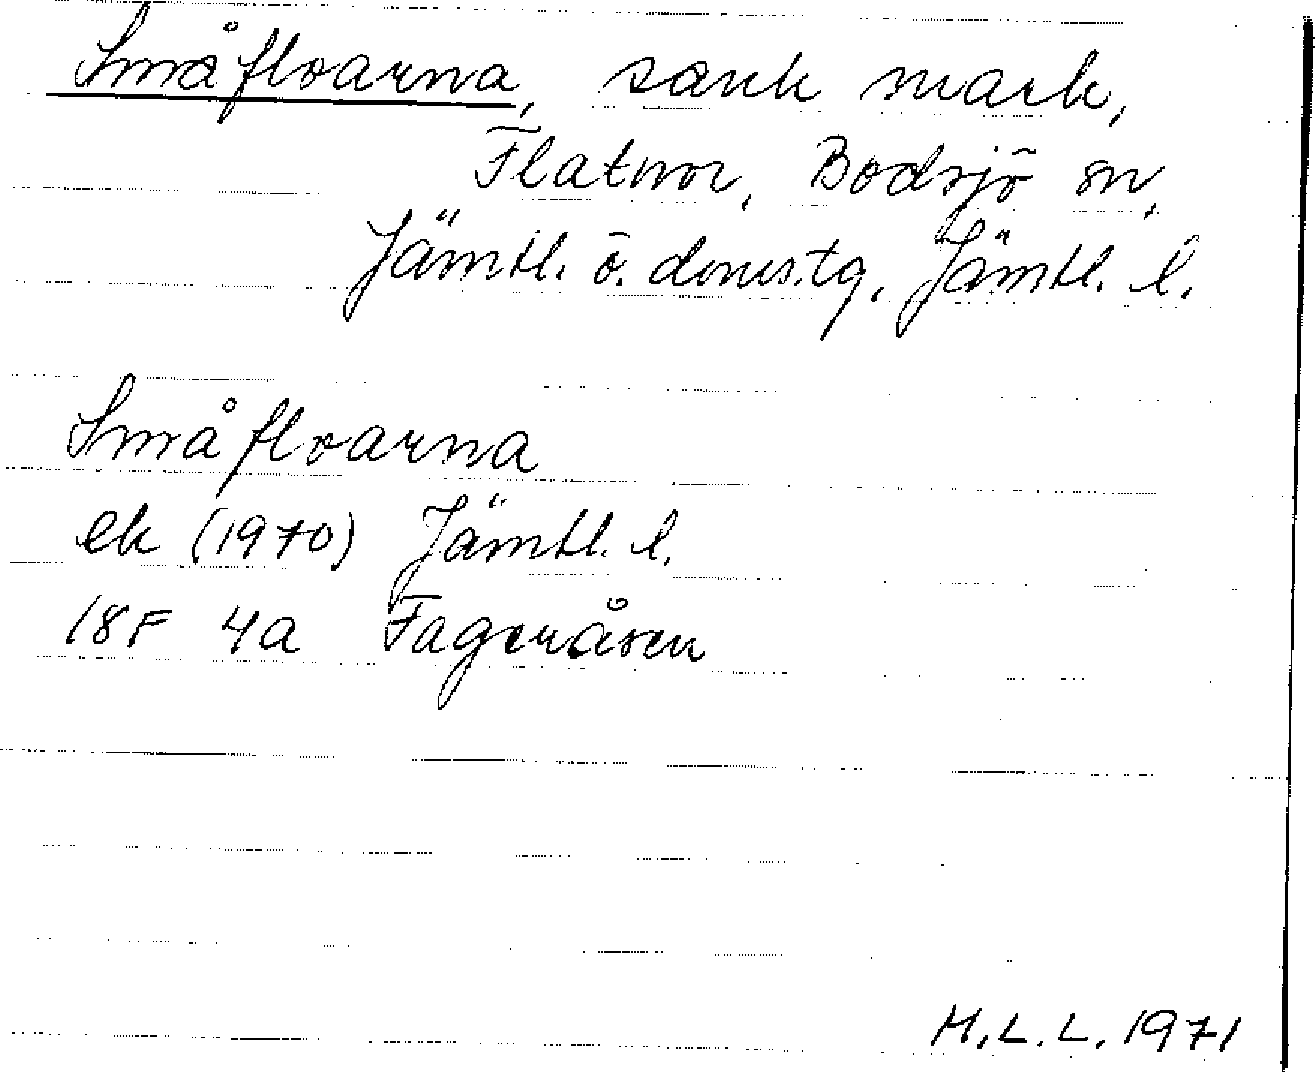 Småfloarna, sank mark,
Flatnor, Bodsjö sn,
Jämtl. ö. doms.tg, Jämtl. l.
Småfloarna
ek (1970) Jämtl. l.
18F 4a Fageråsen
H.L.L. 1971